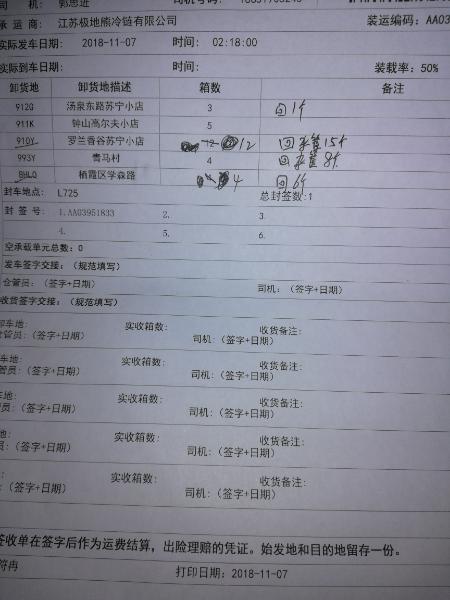 司 机: 郭思进
承 运 商: 江苏极地熊冷链有限公司 装运编码: AA03
实际发车日期: 2018-11-07 时间: 02:18:00
实际到车日期: 时间: 装载率: 50%
卸货地 卸货地描述 箱数 备注
912G 汤泉东路苏宁小店 3 回1个
911K 钟山高尔夫小店 5
910Y 罗兰香谷苏宁小店 12 12 回 15个
993Y 青马村 4 回 8个
8HLQ 栖霞区学森路 4 回6个
封车地点: L725 总封签数:1
封 签 号: 1.AA03951833 2. 3.
4. 5. 6.
空承载单元总数: 0
发车签字交接: (规范填写)
仓管员: (签字+日期) 司机: (签字+日期)
收货签字交接: (规范填写)
卸车地: 实收箱数: 收货备注:
仓管员: (签字+日期) 司机: (签字+日期)
车地: 实收箱数: 收货备注:
管员: (签字+日期) 司机: (签字+日期)
车地: 实收箱数: 收货备注:
员: (签字+日期) 司机: (签字+日期)
地: 实收箱数: 收货备注:
: (签字+日期) 司机: (签字+日期)
: 实收箱数: 收货备注:
(签字+日期) 司机: (签字+日期)
签收单在签字后作为运费结算，出险理赔的凭证。始发地和目的地留存一份。
符冉 打印日期: 2018-11-07